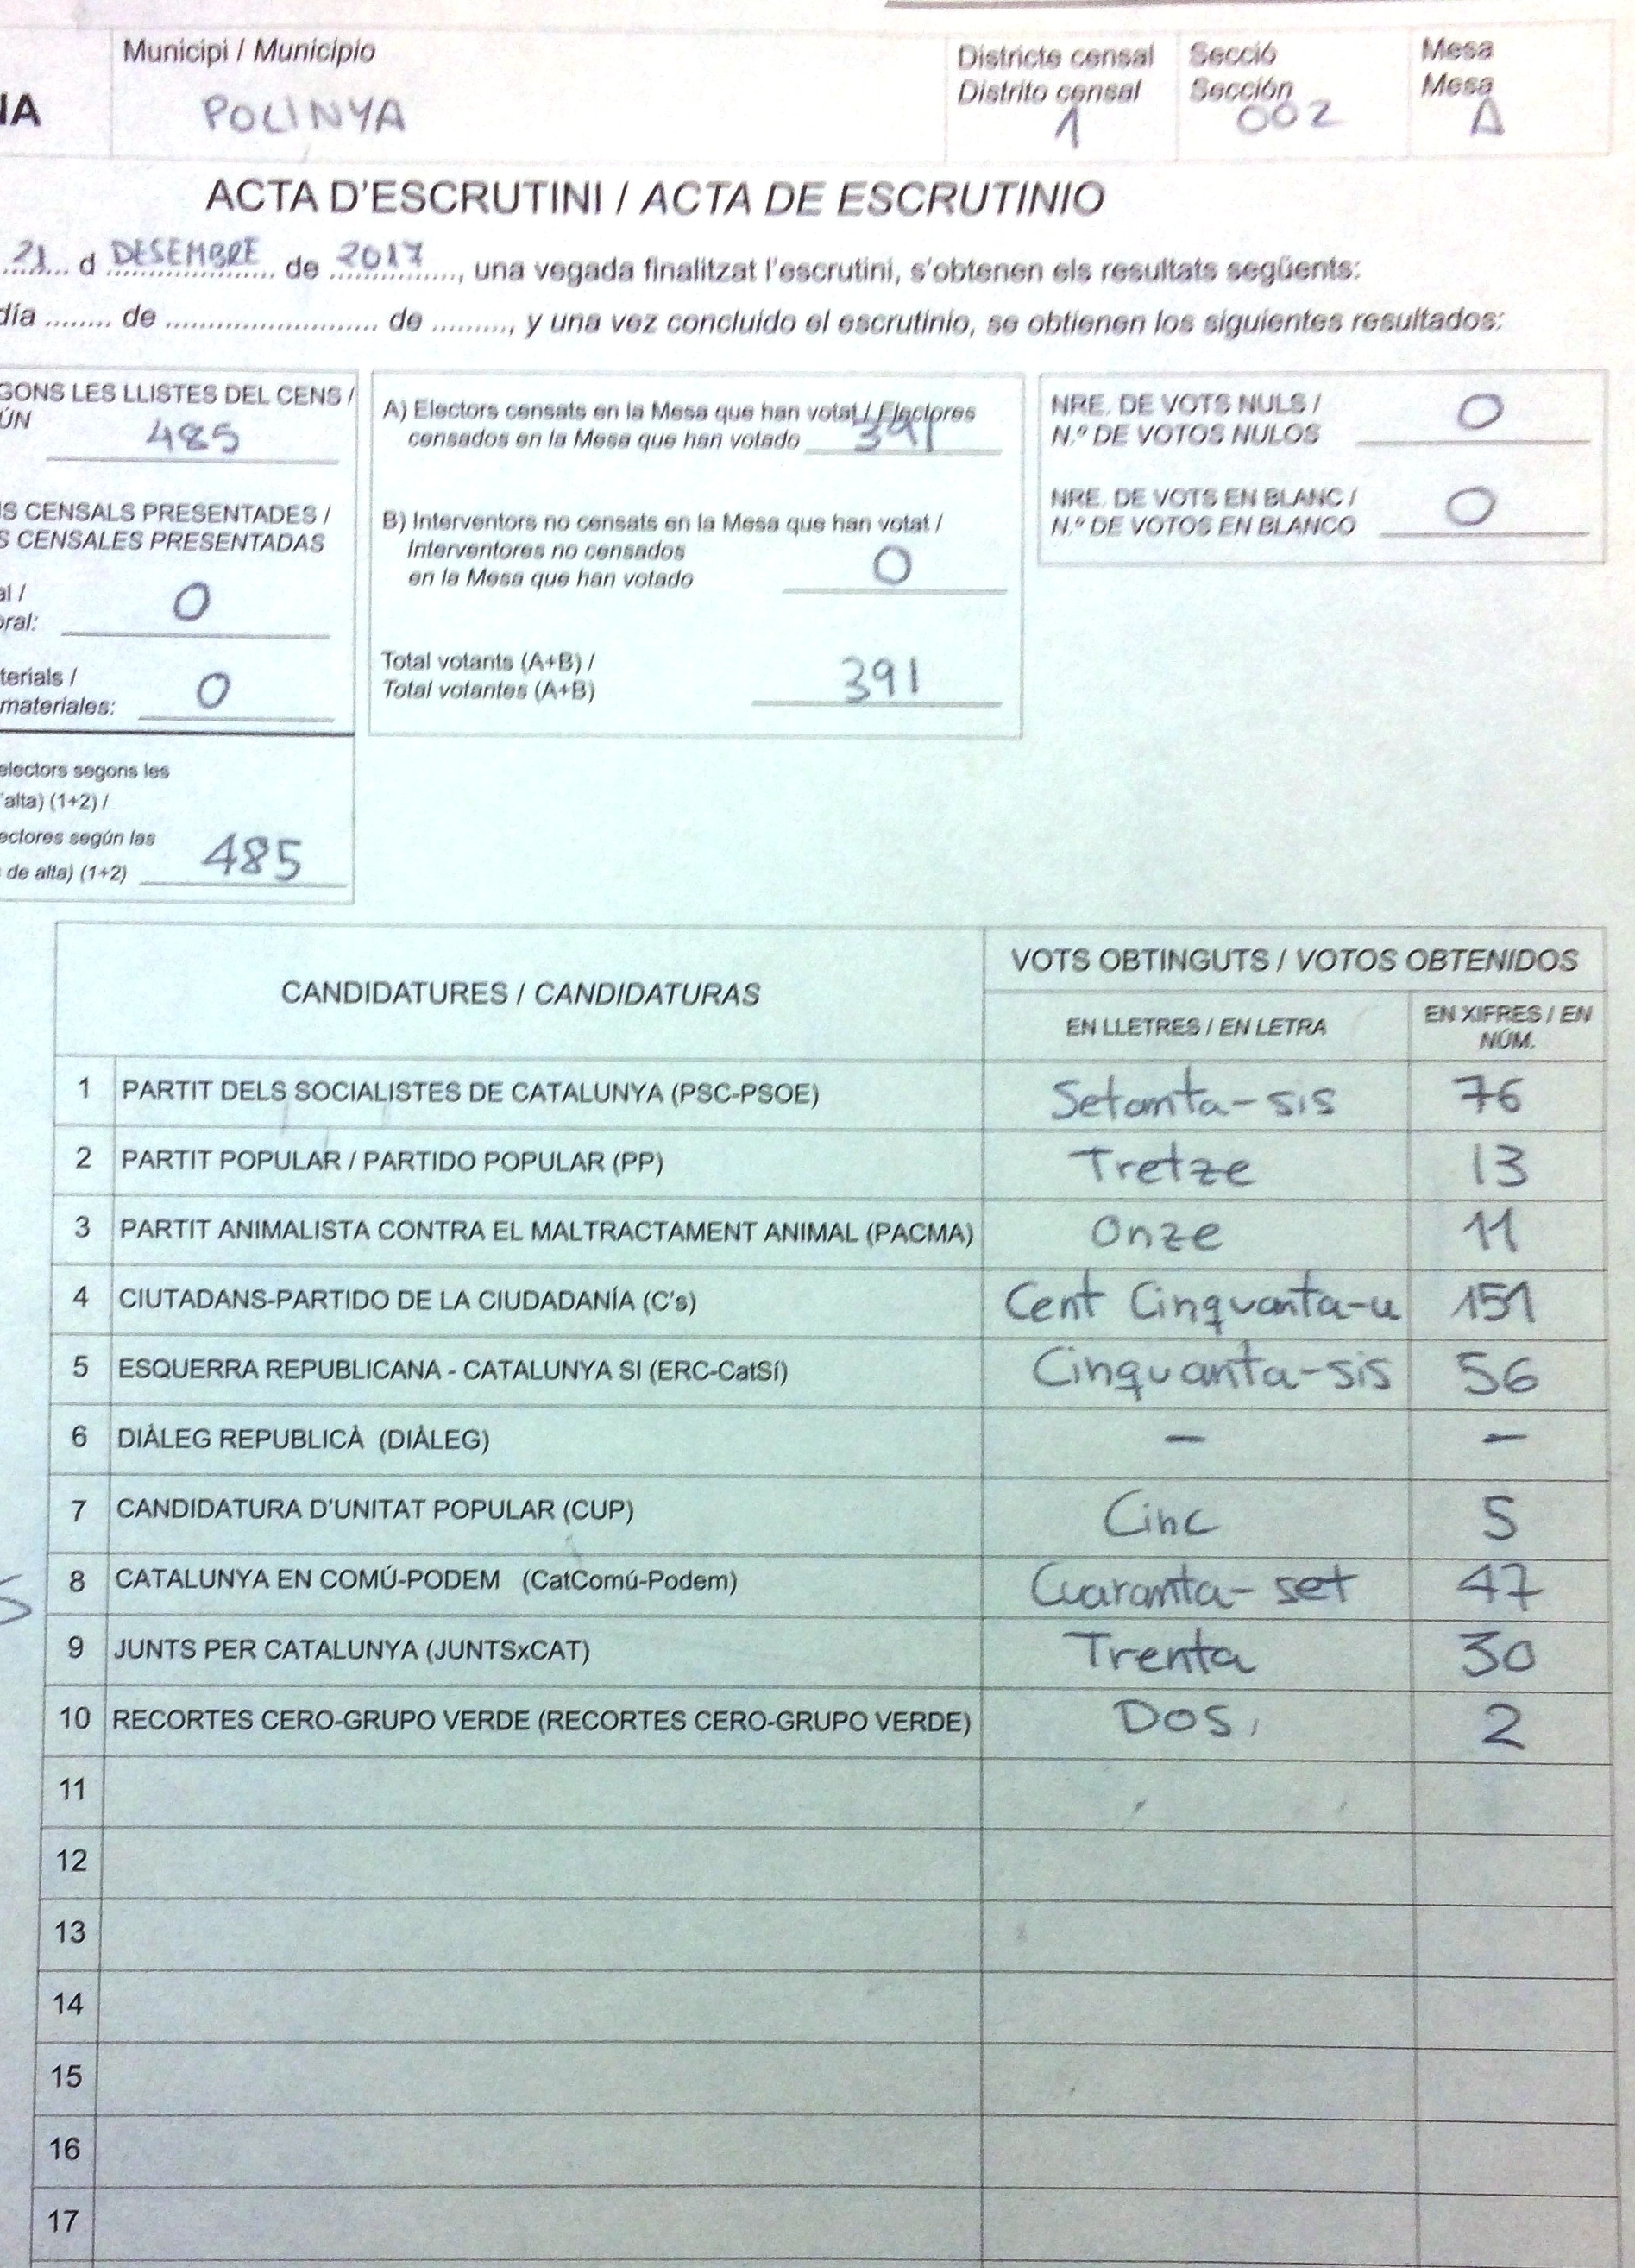 Municipi / Municipio
Districte censal
Secció
Mesa
Distrito censal
Sección
Mesa
NA
POLINYA
1
002
A
ACTA D'ESCRUTINI / ACTA DE ESCRUTINIO
21 d DESEMBRE de 2017, una vegada finalitzat l'escrutini, s'obtenen els resultats següents:
día ........ de .......................... de ........., y una vez concluido el escrutinio, se obtienen los siguientes resultados:
GONS LES LLISTES DEL CENS /
ÚN
485
S CENSALS PRESENTADES /
S CENSALES PRESENTADAS
al /
oral: 0
terials /
materiales: 0
electors segons les
'alta) (1+2) /
ectores según las
de alta) (1+2) 485
A) Electors censats en la Mesa que han votat / Electores
censados en la Mesa que han votado 391
B) Interventors no censats en la Mesa que han votat /
Interventores no censados
en la Mesa que han votado 0
Total votants (A+B) /
Total votantes (A+B) 391
NRE. DE VOTS NULS /
N.º DE VOTOS NULOS 0
NRE. DE VOTS EN BLANC /
N.º DE VOTOS EN BLANCO 0
CANDIDATURES / CANDIDATURAS
VOTS OBTINGUTS / VOTOS OBTENIDOS
EN LLETRES / EN LETRA
EN XIFRES / EN
NÚM.
1 PARTIT DELS SOCIALISTES DE CATALUNYA (PSC-PSOE) Setanta-sis 76
2 PARTIT POPULAR / PARTIDO POPULAR (PP) Tretze 13
3 PARTIT ANIMALISTA CONTRA EL MALTRACTAMENT ANIMAL (PACMA) Onze 11
4 CIUTADANS-PARTIDO DE LA CIUDADANÍA (C's) Cent Cinquanta-u 151
5 ESQUERRA REPUBLICANA - CATALUNYA SI (ERC-CatSí) Cinquanta-sis 56
6 DIÀLEG REPUBLICÀ (DIÀLEG) - -
7 CANDIDATURA D'UNITAT POPULAR (CUP) Cinc 5
8 CATALUNYA EN COMÚ-PODEM (CatComú-Podem) Cuaranta-set 47
9 JUNTS PER CATALUNYA (JUNTSxCAT) Trenta 30
10 RECORTES CERO-GRUPO VERDE (RECORTES CERO-GRUPO VERDE) DOS, 2
11
12
13
14
15
16
17